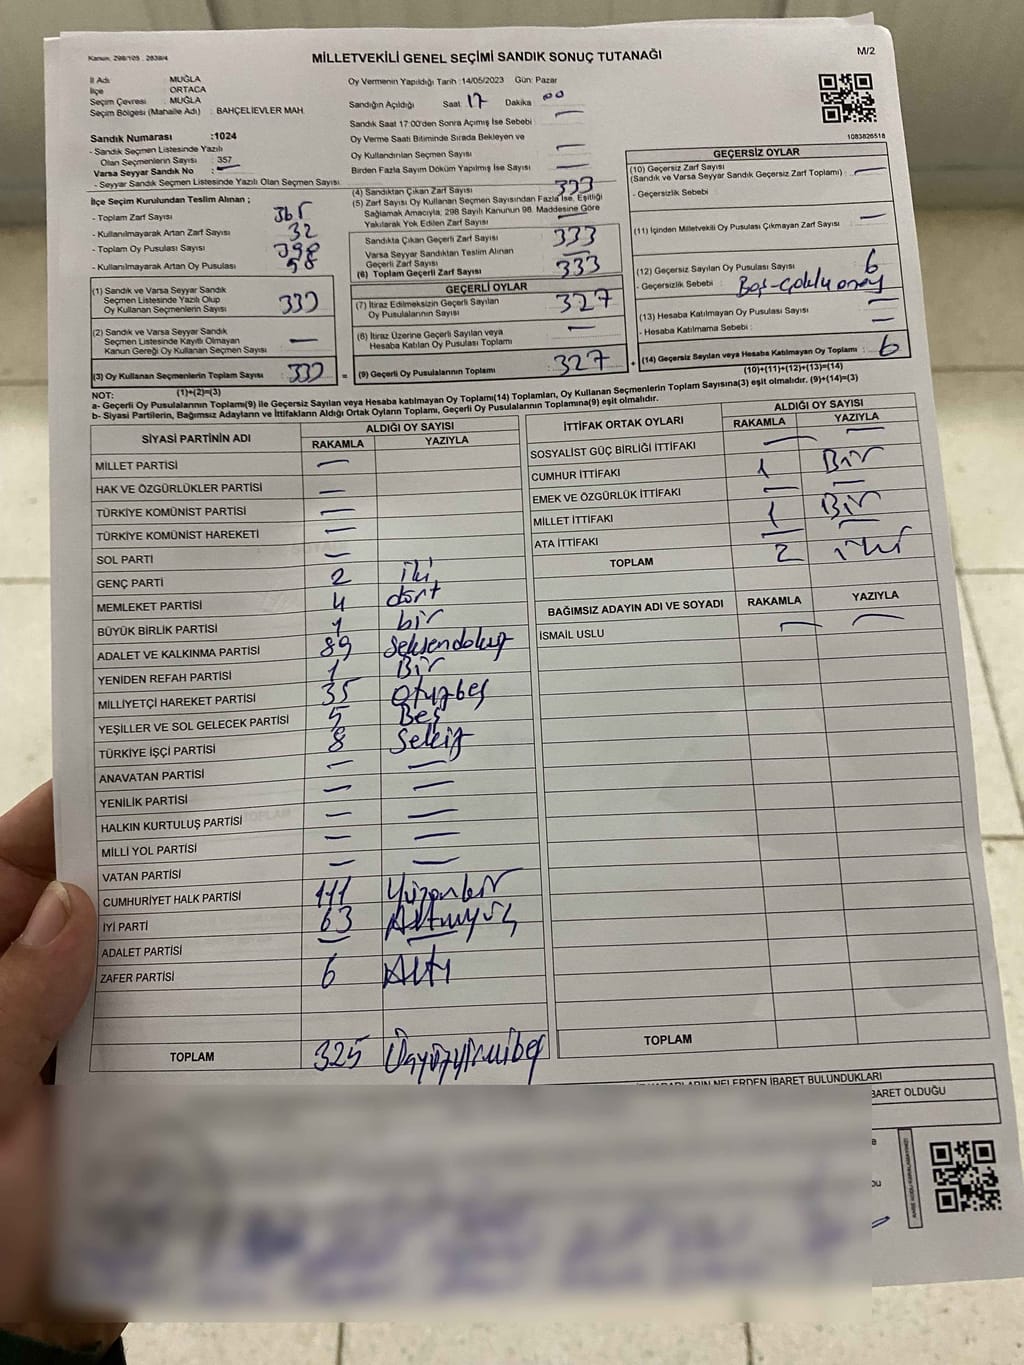 Kanun: 298/105 , 2839/4
MİLLETVEKİLİ GENEL SEÇİMİ SANDIK SONUÇ TUTANAĞI
M/2
İl Adı : MUĞLA
İlçe : ORTACA
Seçim Çevresi : MUĞLA
Seçim Bölgesi (Mahalle Adı) : BAHÇELİEVLER MAH.
Sandık Numarası :1024
- Sandık Seçmen Listesinde Yazılı
Olan Seçmenlerin Sayısı : 357
Varsa Seyyar Sandık No : —
- Seyyar Sandık Seçmen Listesinde Yazılı Olan Seçmen Sayısı:
Oy Vermenin Yapıldığı Tarih :14/05/2023 Gün: Pazar
Sandığın Açıldığı Saat 17 Dakika 00
Sandık Saat 17:00'den Sonra Açımış İse Sebebi : —
Oy Verme Saati Bitiminde Sırada Bekleyen ve
Oy Kullandırılan Seçmen Sayısı —
Birden Fazla Sayım Döküm Yapılmış İse Sayısı : —
1083826518
İlçe Seçim Kurulundan Teslim Alınan ;
- Toplam Zarf Sayısı 365
- Kullanılmayarak Artan Zarf Sayısı 32
- Toplam Oy Pusulası Sayısı 398
- Kullanılmayarak Artan Oy Pusulası 58
(1) Sandık ve Varsa Seyyar Sandık
Seçmen Listesinde Yazılı Olup
Oy Kullanan Seçmenlerin Sayısı 333
(2) Sandık ve Varsa Seyyar Sandık
Seçmen Listesinde Kayıtlı Olmayan
Kanun Gereği Oy Kullanan Seçmen Sayısı —
(3) Oy Kullanan Seçmenlerin Toplam Sayısı : 333 =
(1)+(2)=(3)
(4) Sandıktan Çıkan Zarf Sayısı 333
(5) Zarf Sayısı Oy Kullanan Seçmen Sayısından Fazla İse, Eşitliği
Sağlamak Amacıyla; 298 Sayılı Kanunun 98. Maddesine Göre
Yakılarak Yok Edilen Zarf Sayısı —
Sandıkta Çıkan Geçerli Zarf Sayısı 333
Varsa Seyyar Sandıktan Teslim Alınan
Geçerli Zarf Sayısı —
(6) Toplam Geçerli Zarf Sayısı 333
GEÇERLİ OYLAR
(7) İtiraz Edilmeksizin Geçerli Sayılan
Oy Pusulalarının Sayısı 327
(8) İtiraz Üzerine Geçerli Sayılan veya
Hesaba Katılan Oy Pusulası Toplamı —
(9) Geçerli Oy Pusulalarının Toplamı 327 +
GEÇERSİZ OYLAR
(10) Geçersiz Zarf Sayısı
(Sandık ve Varsa Seyyar Sandık Geçersiz Zarf Toplamı) : —
- Geçersizlik Sebebi :
(11) İçinden Milletvekili Oy Pusulası Çıkmayan Zarf Sayısı —
(12) Geçersiz Sayılan Oy Pusulası Sayısı 6
- Geçersizlik Sebebi : Boş-Çoklu onay
(13) Hesaba Katılmayan Oy Pusulası Sayısı —
- Hesaba Katılmama Sebebi : —
(14) Geçersiz Sayılan veya Hesaba Katılmayan Oy Toplamı : 6
(10)+(11)+(12)+(13)=(14)
NOT:
a- Geçerli Oy Pusulalarının Toplamı(9) ile Geçersiz Sayılan veya Hesaba katılmayan Oy Toplamı(14) Toplamları, Oy Kullanan Seçmenlerin Toplam Sayısına(3) eşit olmalıdır. (9)+(14)=(3)
b- Siyasi Partilerin, Bağımsız Adayların ve İttifakların Aldığı Ortak Oyların Toplamı, Geçerli Oy Pusulalarının Toplamına(9) eşit olmalıdır.
SİYASİ PARTİNİN ADI ALDIĞI OY SAYISI
RAKAMLA YAZIYLA
MİLLET PARTİSİ —
HAK VE ÖZGÜRLÜKLER PARTİSİ —
TÜRKİYE KOMÜNİST PARTİSİ —
TÜRKİYE KOMÜNİST HAREKETİ —
SOL PARTİ —
GENÇ PARTİ 2 iki
MEMLEKET PARTİSİ 4 dört
BÜYÜK BİRLİK PARTİSİ 1 bir
ADALET VE KALKINMA PARTİSİ 89 Seksendokuz
YENİDEN REFAH PARTİSİ 1 Bir
MİLLİYETÇİ HAREKET PARTİSİ 35 otuzbeş
YEŞİLLER VE SOL GELECEK PARTİSİ 5 Beş
TÜRKİYE İŞÇİ PARTİSİ 8 Sekiz
ANAVATAN PARTİSİ — —
YENİLİK PARTİSİ — —
HALKIN KURTULUŞ PARTİSİ — —
MİLLİ YOL PARTİSİ — —
VATAN PARTİSİ — —
CUMHURİYET HALK PARTİSİ 111 Yüzonbir
İYİ PARTİ 63 Altmışüç
ADALET PARTİSİ — —
ZAFER PARTİSİ 6 Altı
TOPLAM 325 Üçyüzyirmibeş
İTTİFAK ORTAK OYLARI ALDIĞI OY SAYISI
RAKAMLA YAZIYLA
SOSYALİST GÜÇ BİRLİĞİ İTTİFAKI — —
CUMHUR İTTİFAKI 1 Bir
EMEK VE ÖZGÜRLÜK İTTİFAKI — —
MİLLET İTTİFAKI 1 Bir
ATA İTTİFAKI — —
TOPLAM 2 iki
BAĞIMSIZ ADAYIN ADI VE SOYADI RAKAMLA YAZIYLA
İSMAİL USLU — —
TOPLAM
NELERDEN İBARET BULUNDUKLARI
BARET OLDUĞU